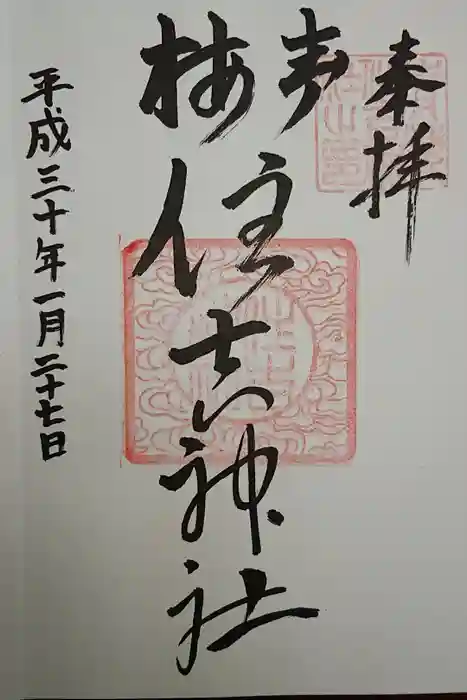 奉拝
青梅
住吉神社
平成三十年一月二十七日